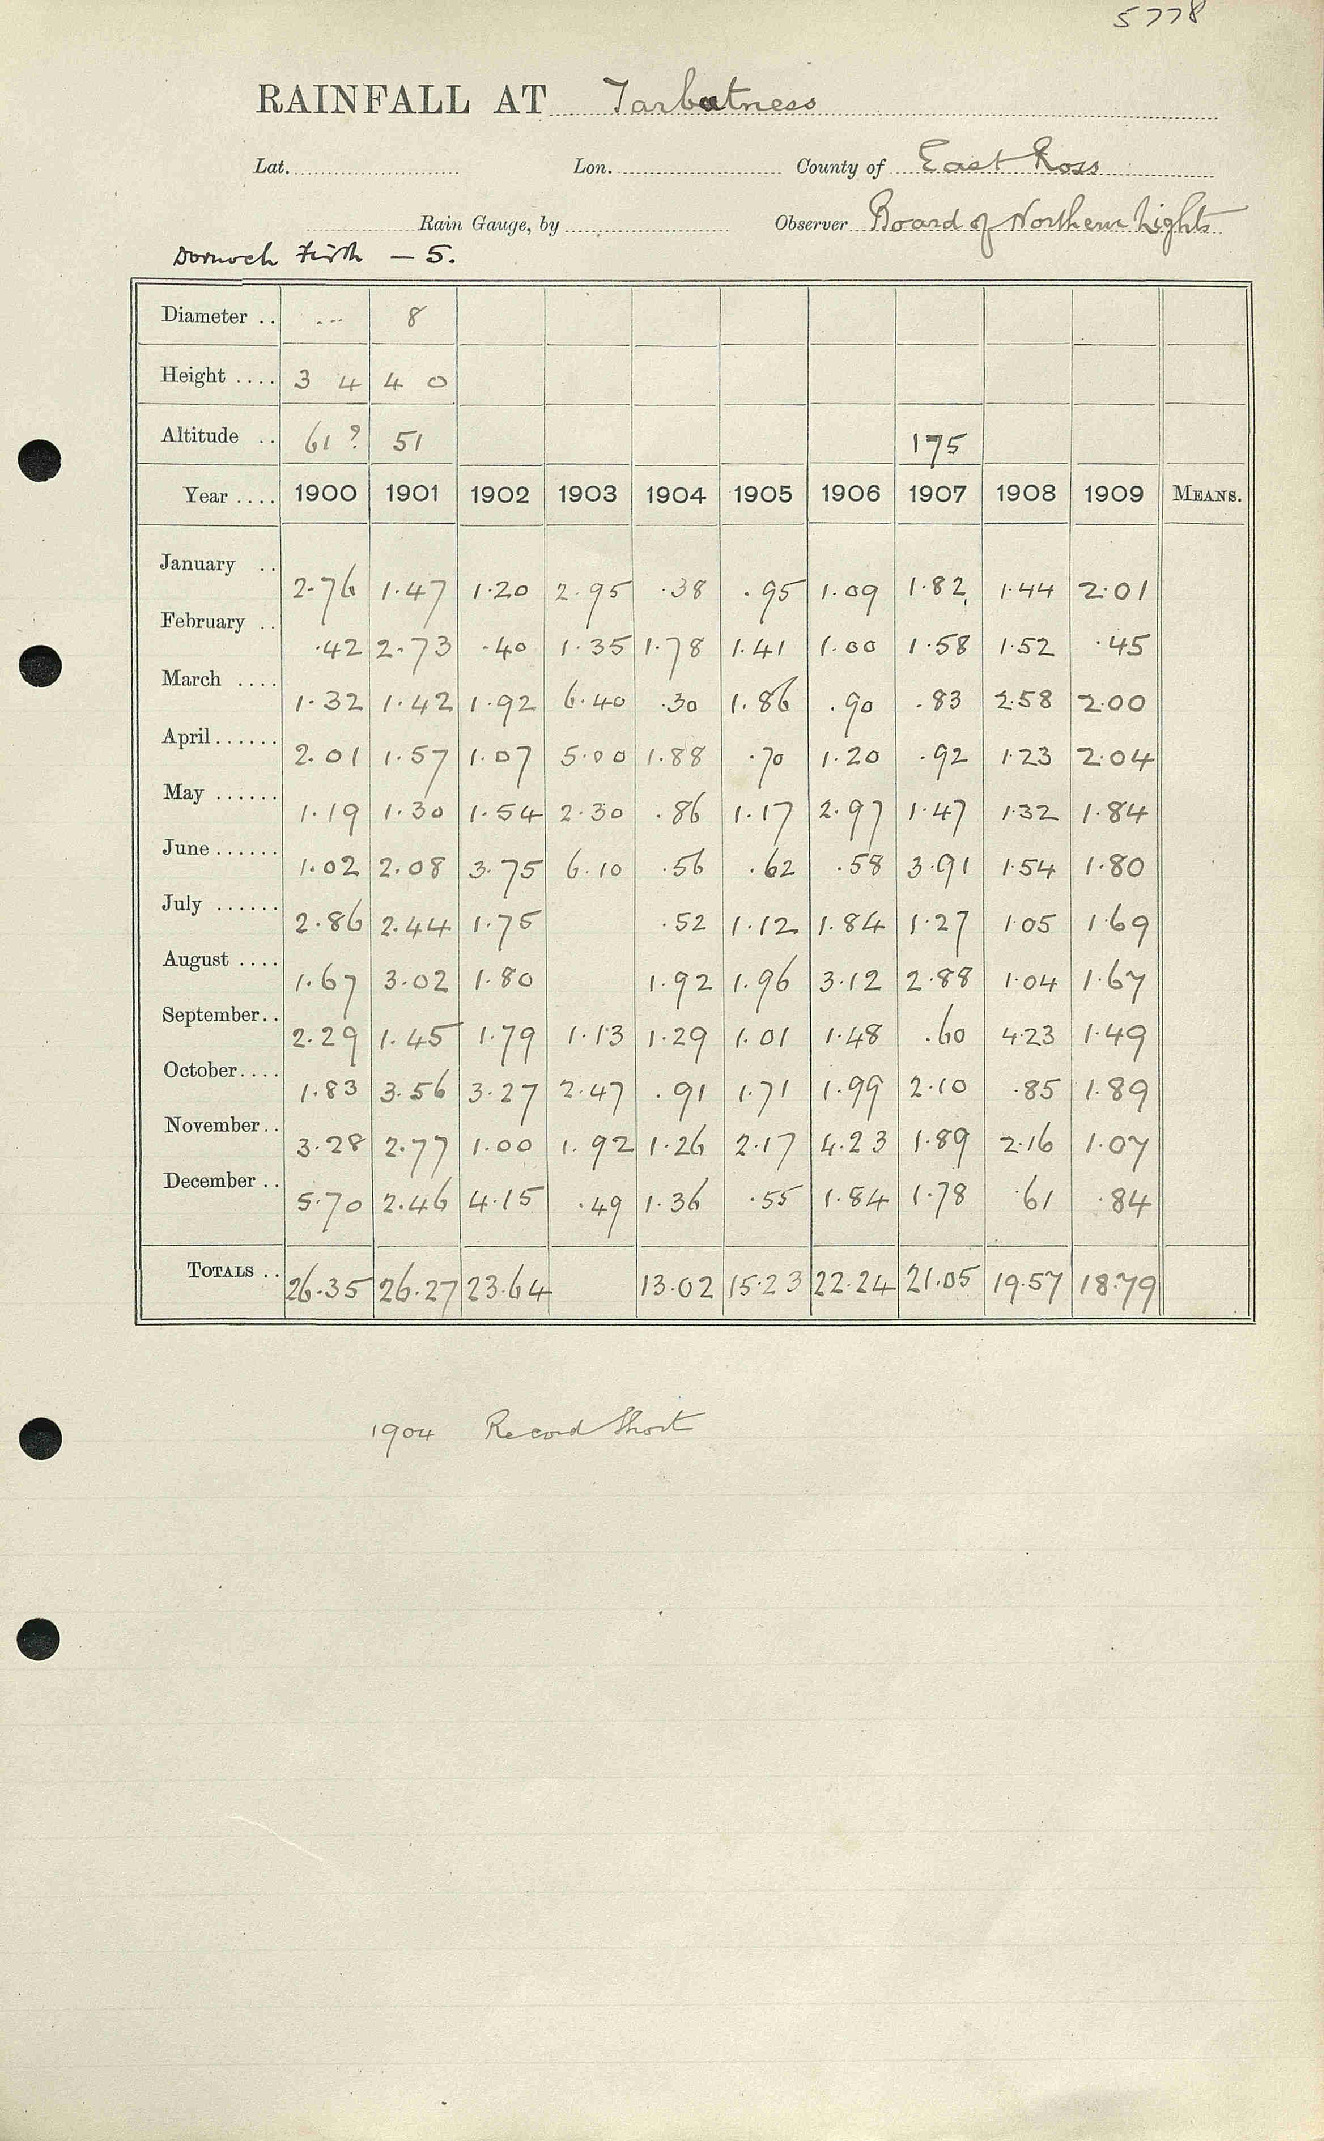 5778
RAINFALL AT Tarbatness
Lat. Lon. County of East Ross
Rain Gauge, by Observer Board of Northern Lights
Dornoch Firth — 5.
Diameter .. --- 8
Height .... 3 4 4 0
Altitude .. 61? 51 175
Year .... 1900 1901 1902 1903 1904 1905 1906 1907 1908 1909 MEANS.
January .. 2.76 1.47 1.20 2.95 .38 .95 1.09 1.82 1.44 2.01
February .. .42 2.73 .40 1.35 1.78 1.41 1.00 1.58 1.52 .45
March .... 1.32 1.42 1.92 6.40 .30 1.86 .90 .83 2.58 2.00
April...... 2.01 1.57 1.07 5.00 1.88 .70 1.20 .92 1.23 2.04
May ...... 1.19 1.30 1.54 2.30 .86 1.17 2.97 1.47 1.32 1.84
June...... 1.02 2.08 3.75 6.10 .56 .62 .58 3.91 1.54 1.80
July ...... 2.86 2.44 1.75 .52 1.12 1.84 1.27 1.05 1.69
August .... 1.67 3.02 1.80 1.92 1.96 3.12 2.88 1.04 1.67
September.. 2.29 1.45 1.79 1.13 1.29 1.01 1.48 .60 4.23 1.49
October.... 1.83 3.56 3.27 2.47 .91 1.71 1.99 2.10 .85 1.89
November.. 3.28 2.77 1.00 1.92 1.26 2.17 4.23 1.89 2.16 1.07
December .. 5.70 2.46 4.15 .49 1.36 .55 1.84 1.78 .61 .84
TOTALS .. 26.35 26.27 23.64 13.02 15.23 22.24 21.05 19.57 18.79
1904 Record Short